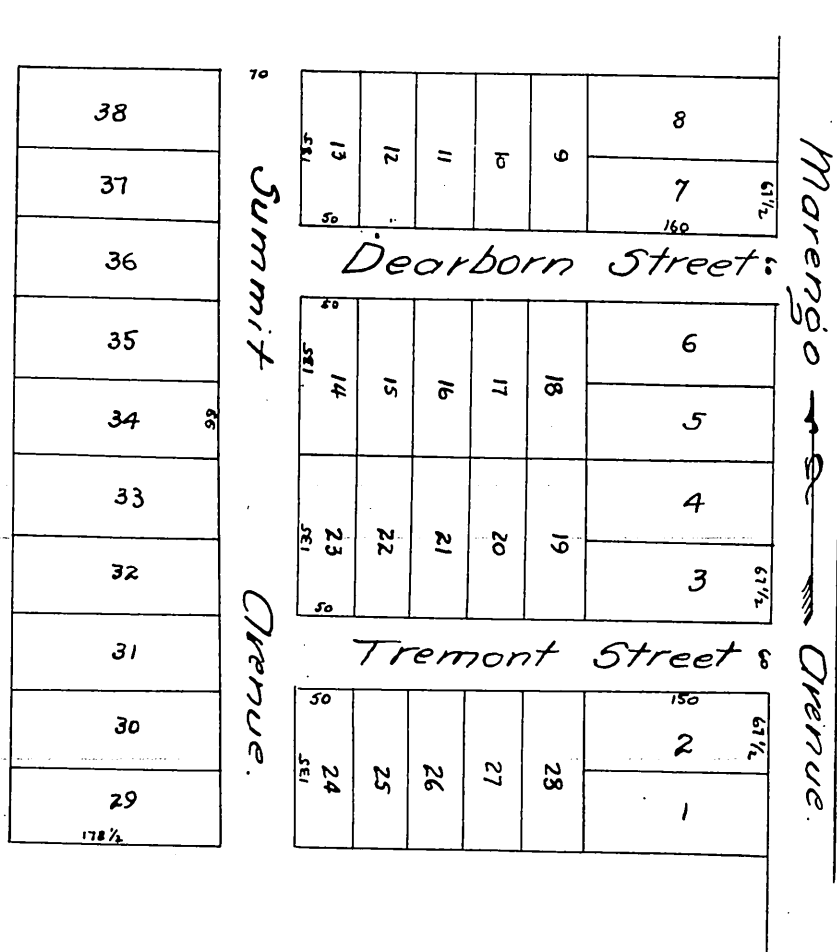 70
38
37
36
35
34
66
33
32
31
30
29
178½
Summit Avenue.
13
135
50
12
11
10
9
8
7
67½
160
Dearborn Street
60
50
135
14
15
16
17
18
6
5
4
3
67½
23
135
50
22
21
20
19
Tremont Street
60
50
24
135
25
26
27
28
150
2
67½
1
Marengo Avenue.